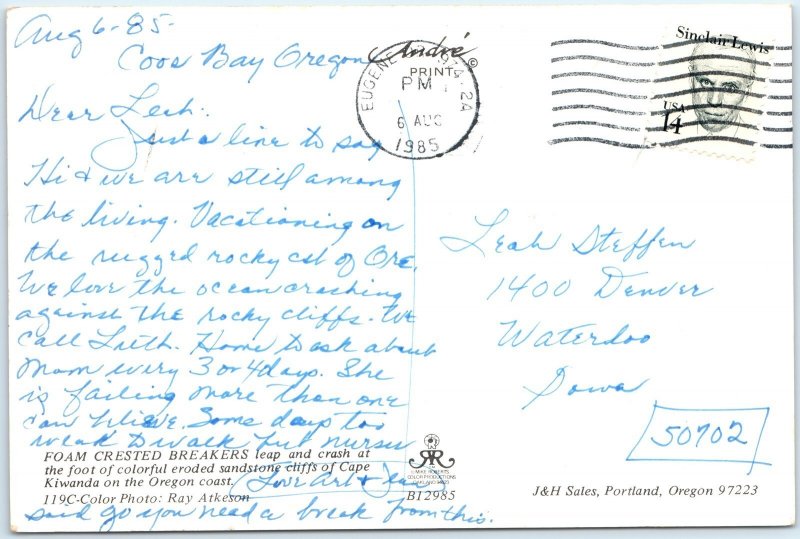 Aug 6-85-
Coos Bay Oregon
Dear Leah:
Just a line to say
Hi & we are still among
the living. Vacationing on
the rugged rocky cst of Ore.
We love the ocean crashing
against the rocky cliffs. We
call Luth. Home to ask about
Mom every 3 or 4 days. She
is failing more than one
can believe. Some days too
weak to walk but nurses
Love Art &
said go you need a break from this.
FOAM CRESTED BREAKERS leap and crash at
the foot of colorful eroded sandstone cliffs of Cape
Kiwanda on the Oregon coast.
119C-Color Photo: Ray Atkeson
André
PRINT
©
EUGENE 974 2A
PM
6 AUG
1985
Sinclair Lewis
USA
14
Leah Steffen
1400 Denver
Waterloo
Iowa
50702
MIKE ROBERTS
COLOR PRODUCTIONS
B12985
J&H Sales, Portland, Oregon 97223